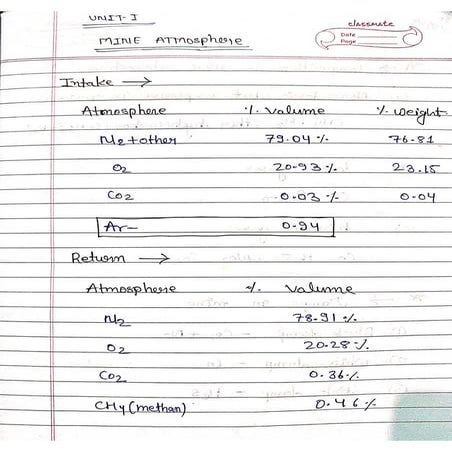 UNIT-I
classmate
Date
Page
MINE ATMosphere
Intake →
Atmosphere % Volume % weight
N2+other 79.04 % 76.81
O2 20.93 % 23.15
CO2 0.03 % 0.04
Ar- 0.94
Return →
Atmosphere % Valume
N2 78.91 %
O2 20.28 %
CO2 0.36 %
CH4 (methan) 0.46 %